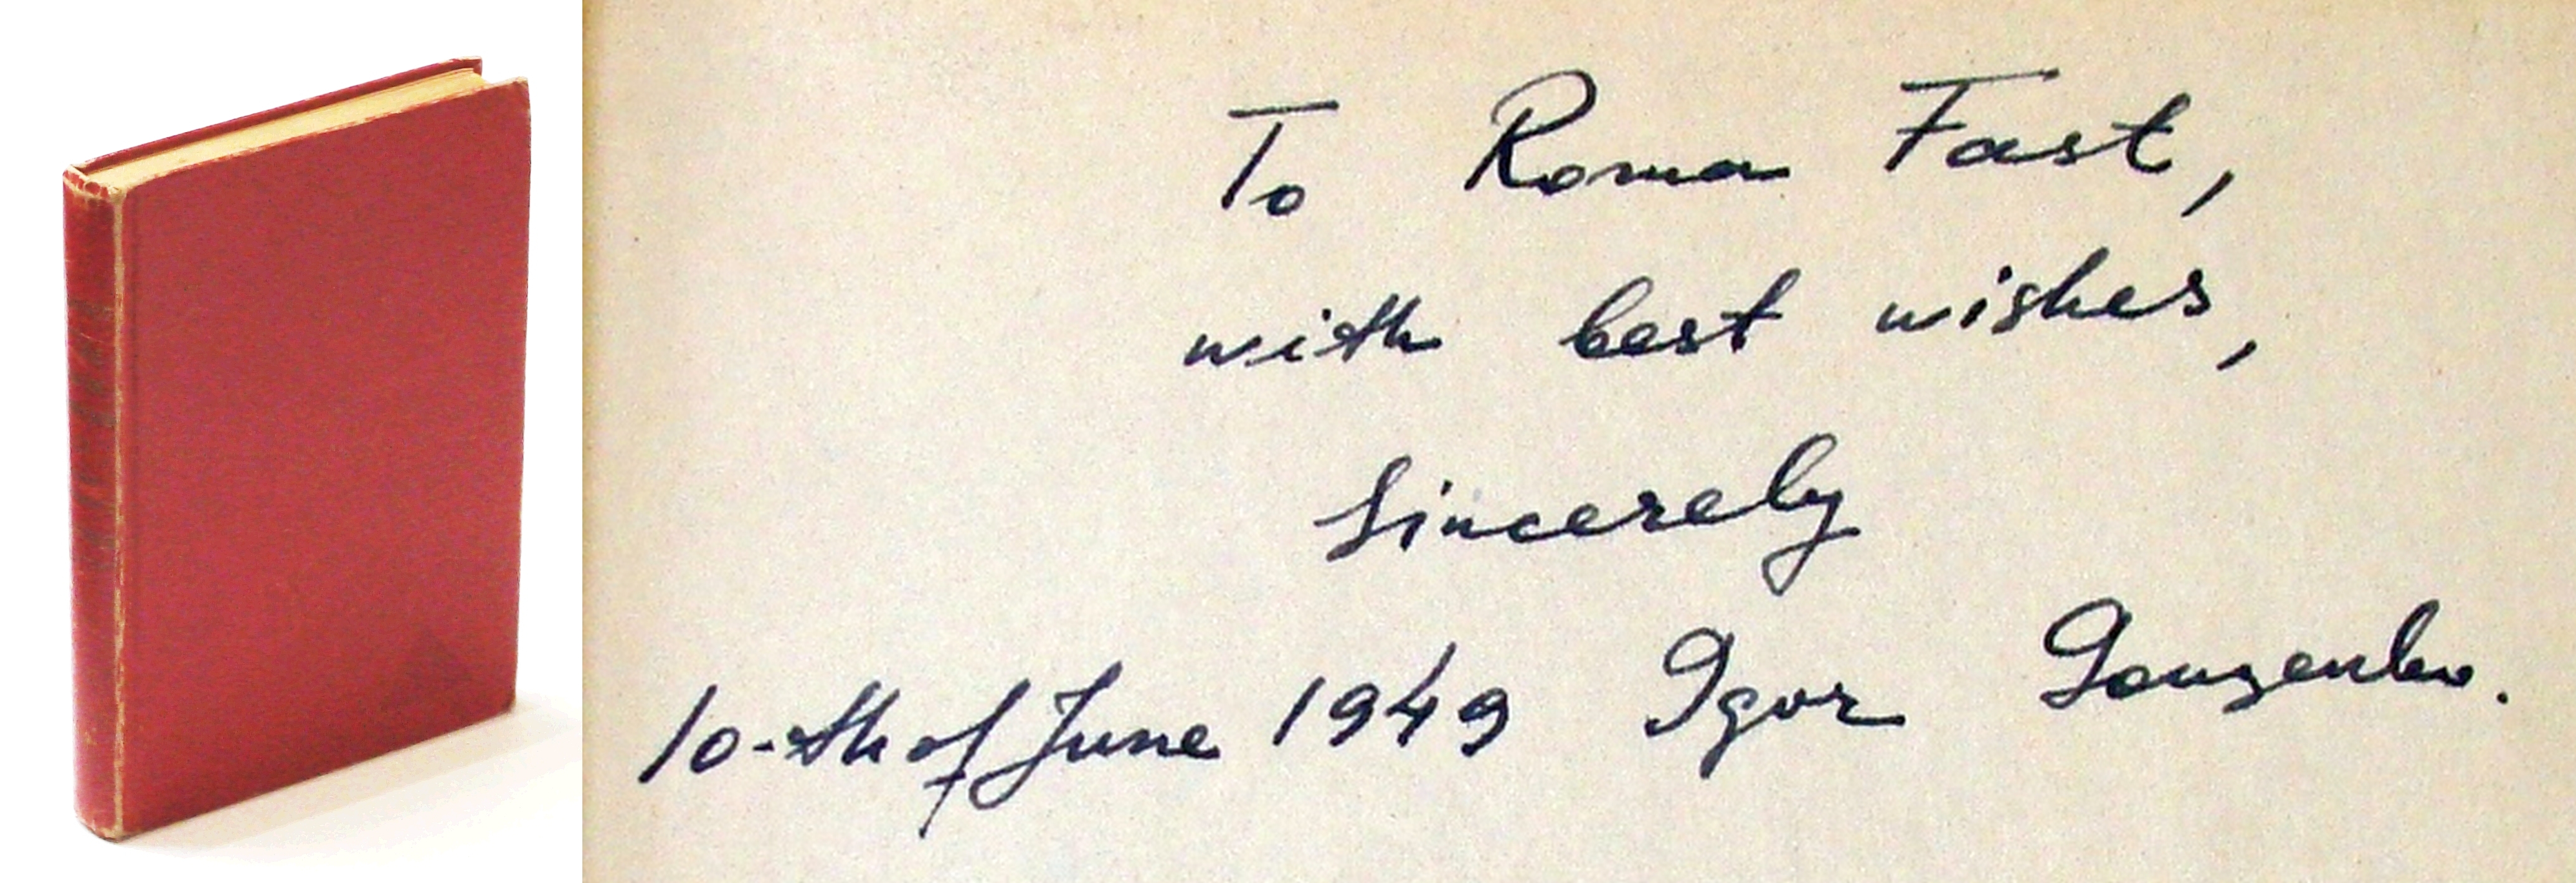 To Roma Fast,
with best wishes,
Sincerely
10-th of June 1949 Igor Gouzenko.